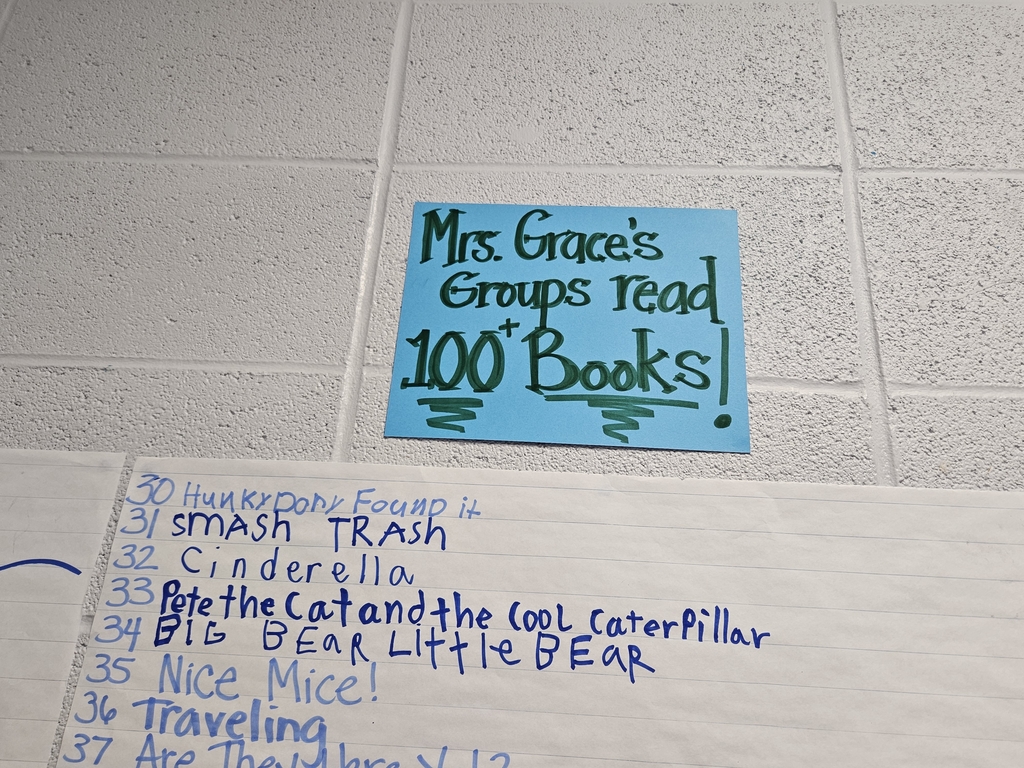 Mrs. Grace's
Groups read
100+ Books!
30 Hunkydory Found it
31 SMASH TRASH
32 Cinderella
33 Pete the Cat and the Cool Caterpillar
34 BIG BEAR LittlE BEAR
35 Nice Mice!
36 Traveling
37 Are They